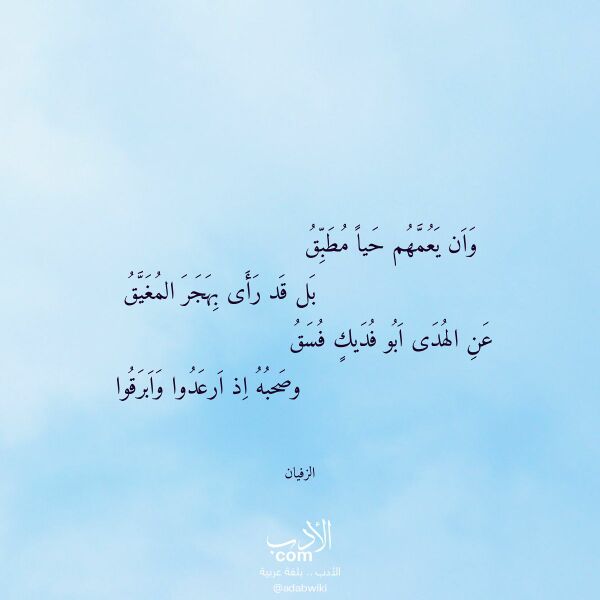 وَاَن يَعُمَّهُم حَياً مُطَبِّقُ
بَل قَد رَأَى بِهَجَرَ المُغَيَّقُ
عَنِ الهُدَى اَبُو فُدَيكٍ فُسَقُ
وصَحبُهُ اِذ اَرعَدُوا وَاَبرَقُوا
الزفيان
الأدب
com
الأدب .. بلغة عربية
@adabwiki